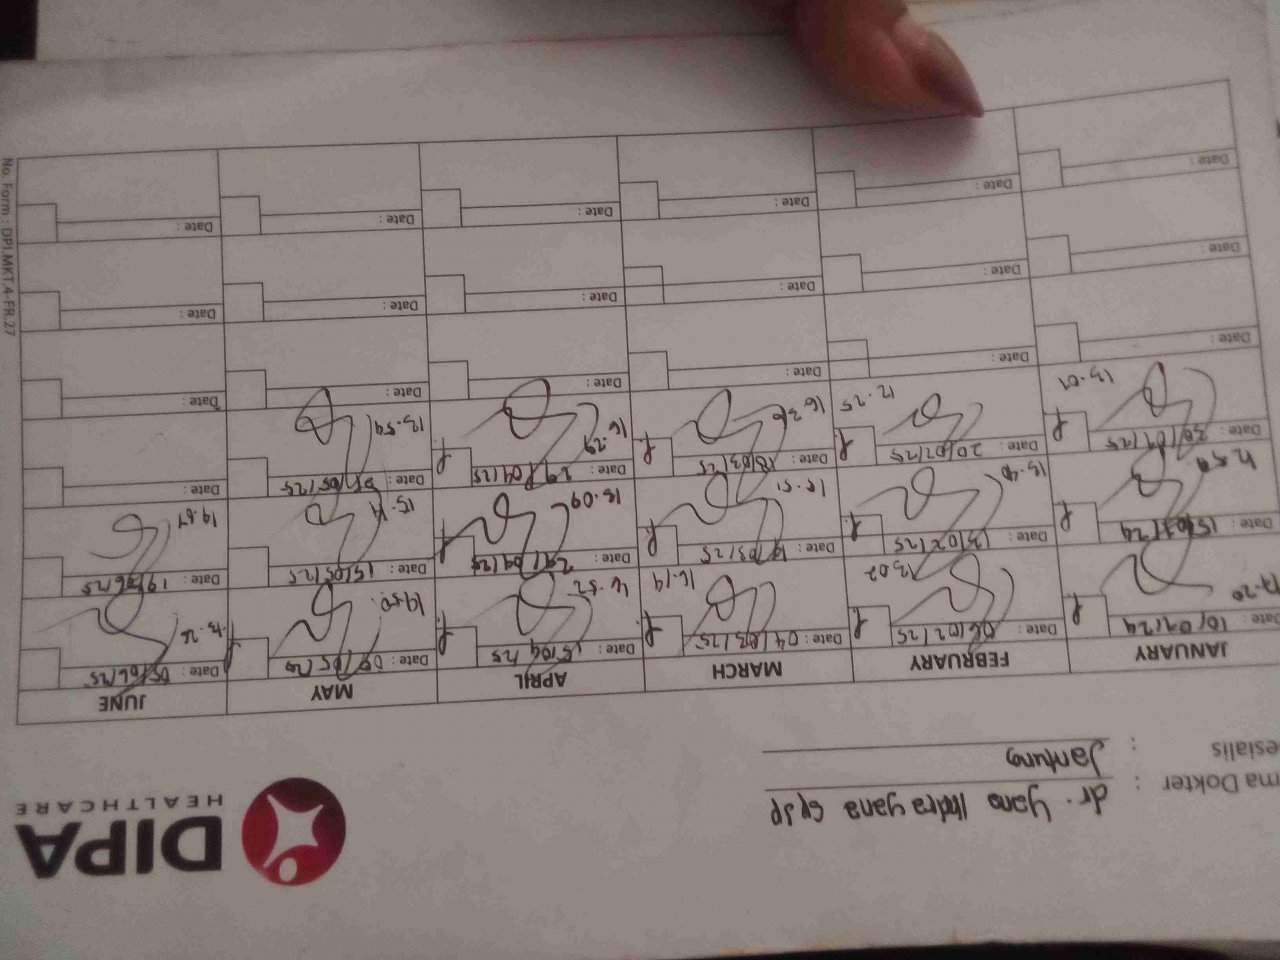 DIPA
HEALTHCARE
ma Dokter : dr. Yana Indrayana SpJP
esialis : Jantung
JANUARY FEBRUARY MARCH APRIL MAY JUNE
Date: 10/01/24 Date: 06/02/25 Date: 04/03/25 Date: 15/04/25 Date: Date: 05/06/25
17.20 13.02 16.19 16.52 19.50
Date: Date: 13/02/25 Date: Date: Date: 15/05/25 Date: 19/06/25
15.51 15.09 15.19 19.57
Date: 30/01/25 Date: 20/02/25 Date: 18/03/25 Date: 29/04/25 Date: Date:
13.01 12.25 16.36 16.29 13.54
Date: Date: Date: Date: Date: Date:
Date: Date: Date: Date: Date: Date:
Date: Date: Date: Date: Date: Date:
No. Form : DPI.MKT.4-FR.27